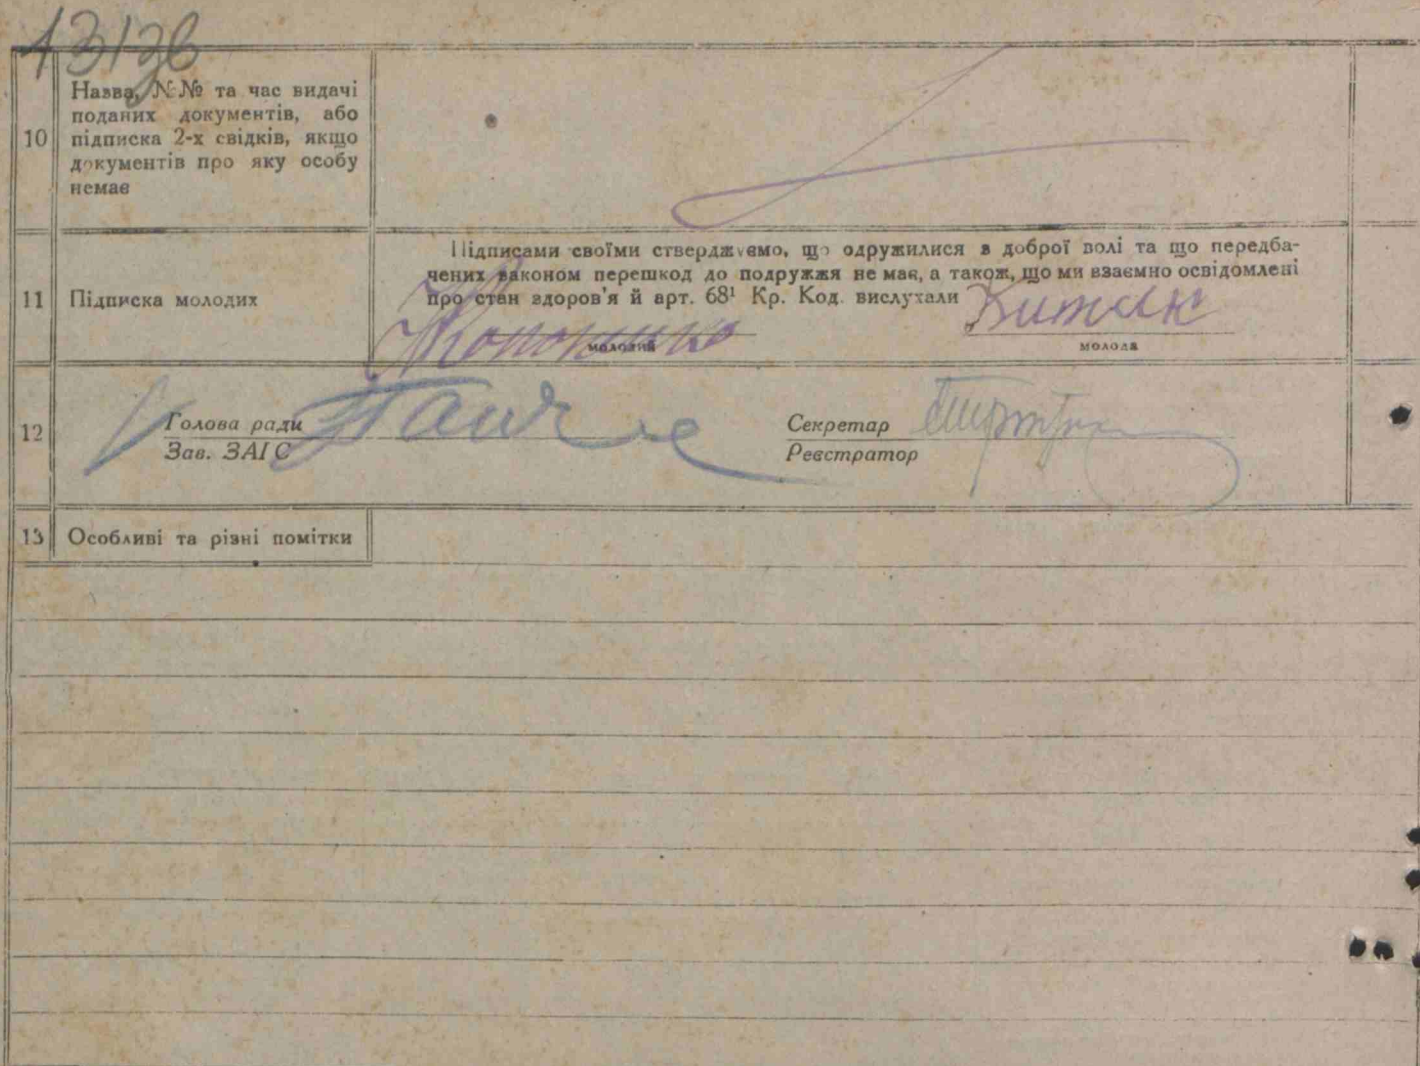 Назва, №№ та час видачі
поданих документів, або
10 підписка 2-х свідків, якщо
документів про яку особу
немає
Підписами своїми стверджуємо, що одружилися з доброї волі та що передба-
чених законом перешкод до подружжя не має, а також, що ми взаємно освідомлені
11 Підписка молодих про стан здоров'я й арт. 68¹ Кр. Код. вислухали
молодий молода
12 Голова ради Секретар
Зав. ЗАГС Реєстратор
13 Особливі та різні помітки